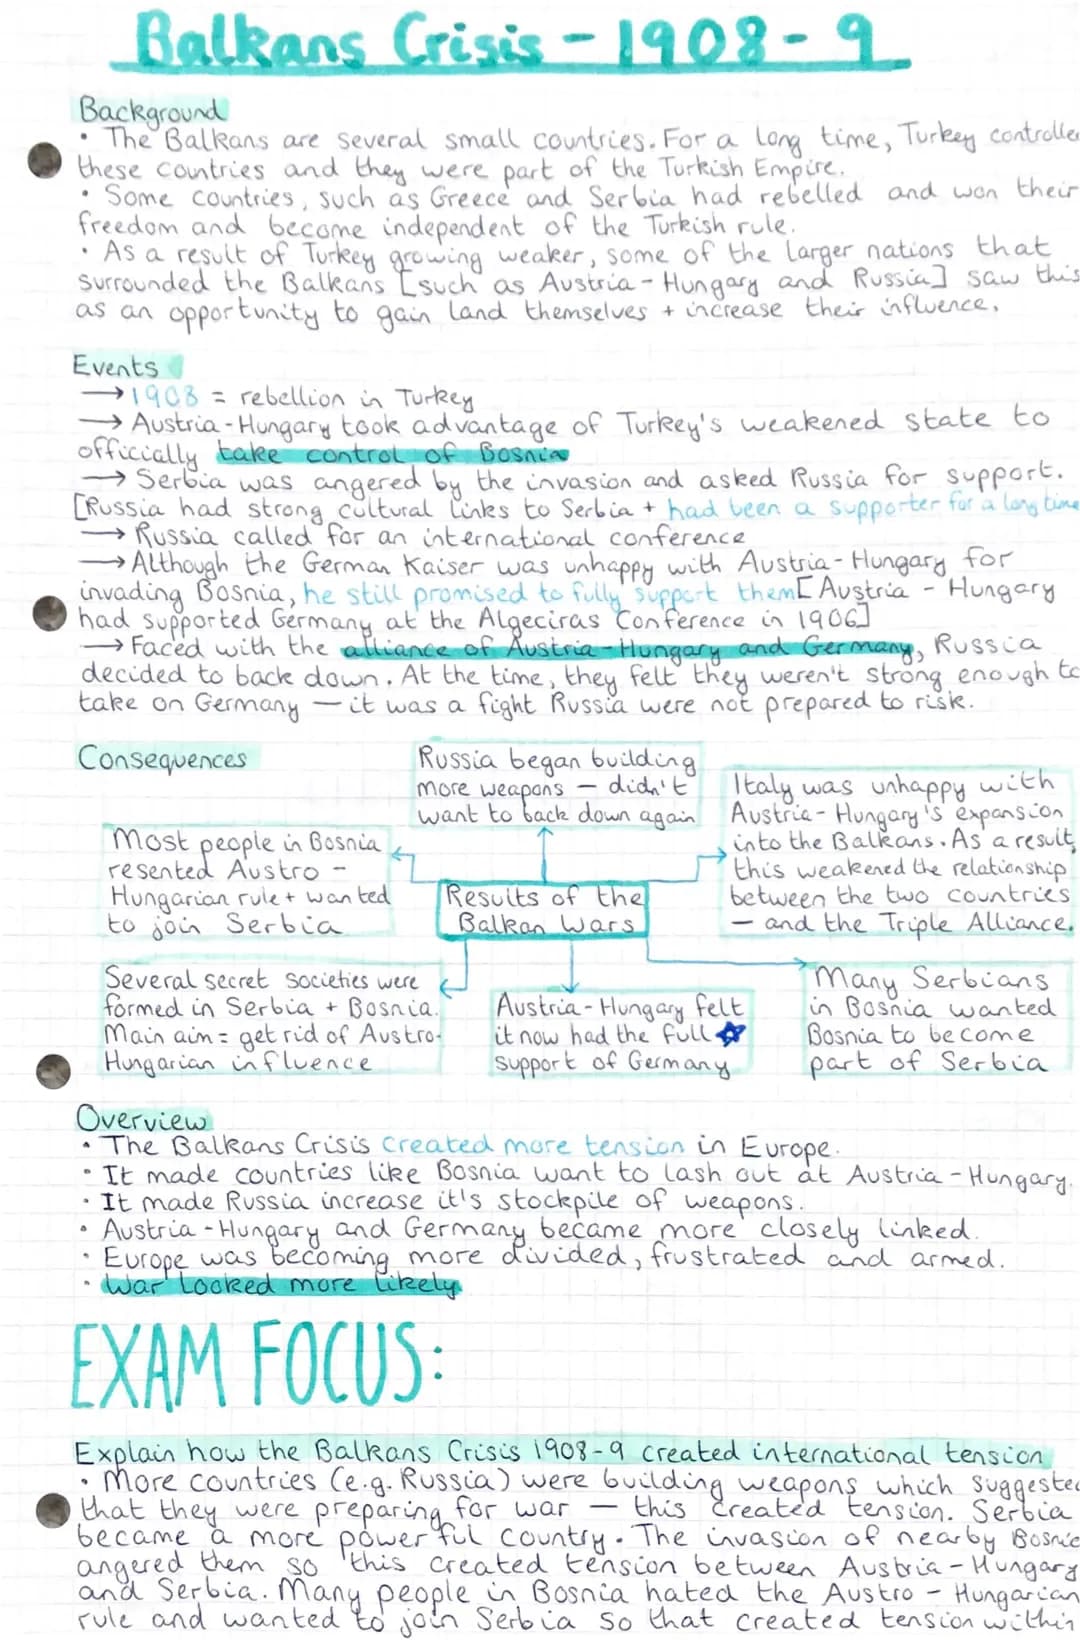 Balkans Crisis - 1908-9
Background
• The Balkans are several small countries. For a long time, Turkey controlle
these countries and they were part of the Turkish Empire.
• Some countries, such as Greece and Serbia had rebelled and won their
freedom and become independent of the Turkish rule.
• As a result of Turkey growing weaker, some of the larger nations that
surrounded the Balkans [such as Austria-Hungary and Russia] saw this
as an opportunity to gain land themselves + increase their influence.
Events
→ 1908 = rebellion in Turkey
→ Austria-Hungary took advantage of Turkey's weakened state to
officially take control of Bosnia
→ Serbia was angered by the invasion and asked Russia for support.
[Russia had strong cultural links to Serbia + had been a supporter for a long time
→ Russia called for an international conference
→ Although the German Kaiser was unhappy with Austria-Hungary for
invading Bosnia, he still promised to fully support them [Austria - Hungary
had supported Germany at the Algeciras Conference in 1906]
→ Faced with the alliance of Austria-Hungary and Germany, Russia
decided to back down. At the time, they felt they weren't strong enough to
take on Germany — it was a fight Russia were not prepared to risk.
Consequences
Russia began building
more weapons — didn't
want to back down again
Italy was unhappy with
Austria-Hungary's expansion
into the Balkans. As a result,
this weakened the relationship
between the two countries
— and the Triple Alliance.
Most people in Bosnia
resented Austro -
Hungarian rule + wanted
to join Serbia
Results of the
Balkan Wars
Several secret societies were
formed in Serbia + Bosnia.
Main aim = get rid of Austro-
Hungarian influence
Austria-Hungary felt
it now had the full
support of Germany
Many Serbians
in Bosnia wanted
Bosnia to become
part of Serbia
Overview
• The Balkans Crisis created more tension in Europe.
• It made countries like Bosnia want to lash out at Austria-Hungary.
• It made Russia increase it's stockpile of weapons.
• Austria-Hungary and Germany became more closely linked.
• Europe was becoming more divided, frustrated and armed.
• War looked more likely
EXAM FOCUS:
Explain how the Balkans Crisis 1908-9 created international tension
• More countries (e.g. Russia) were building weapons which suggested
that they were preparing for war — this created tension. Serbia
became a more powerful country. The invasion of nearby Bosnia
angered them so this created tension between Austria-Hungary
and Serbia. Many people in Bosnia hated the Austro - Hungarian
rule and wanted to join Serbia so that created tension within